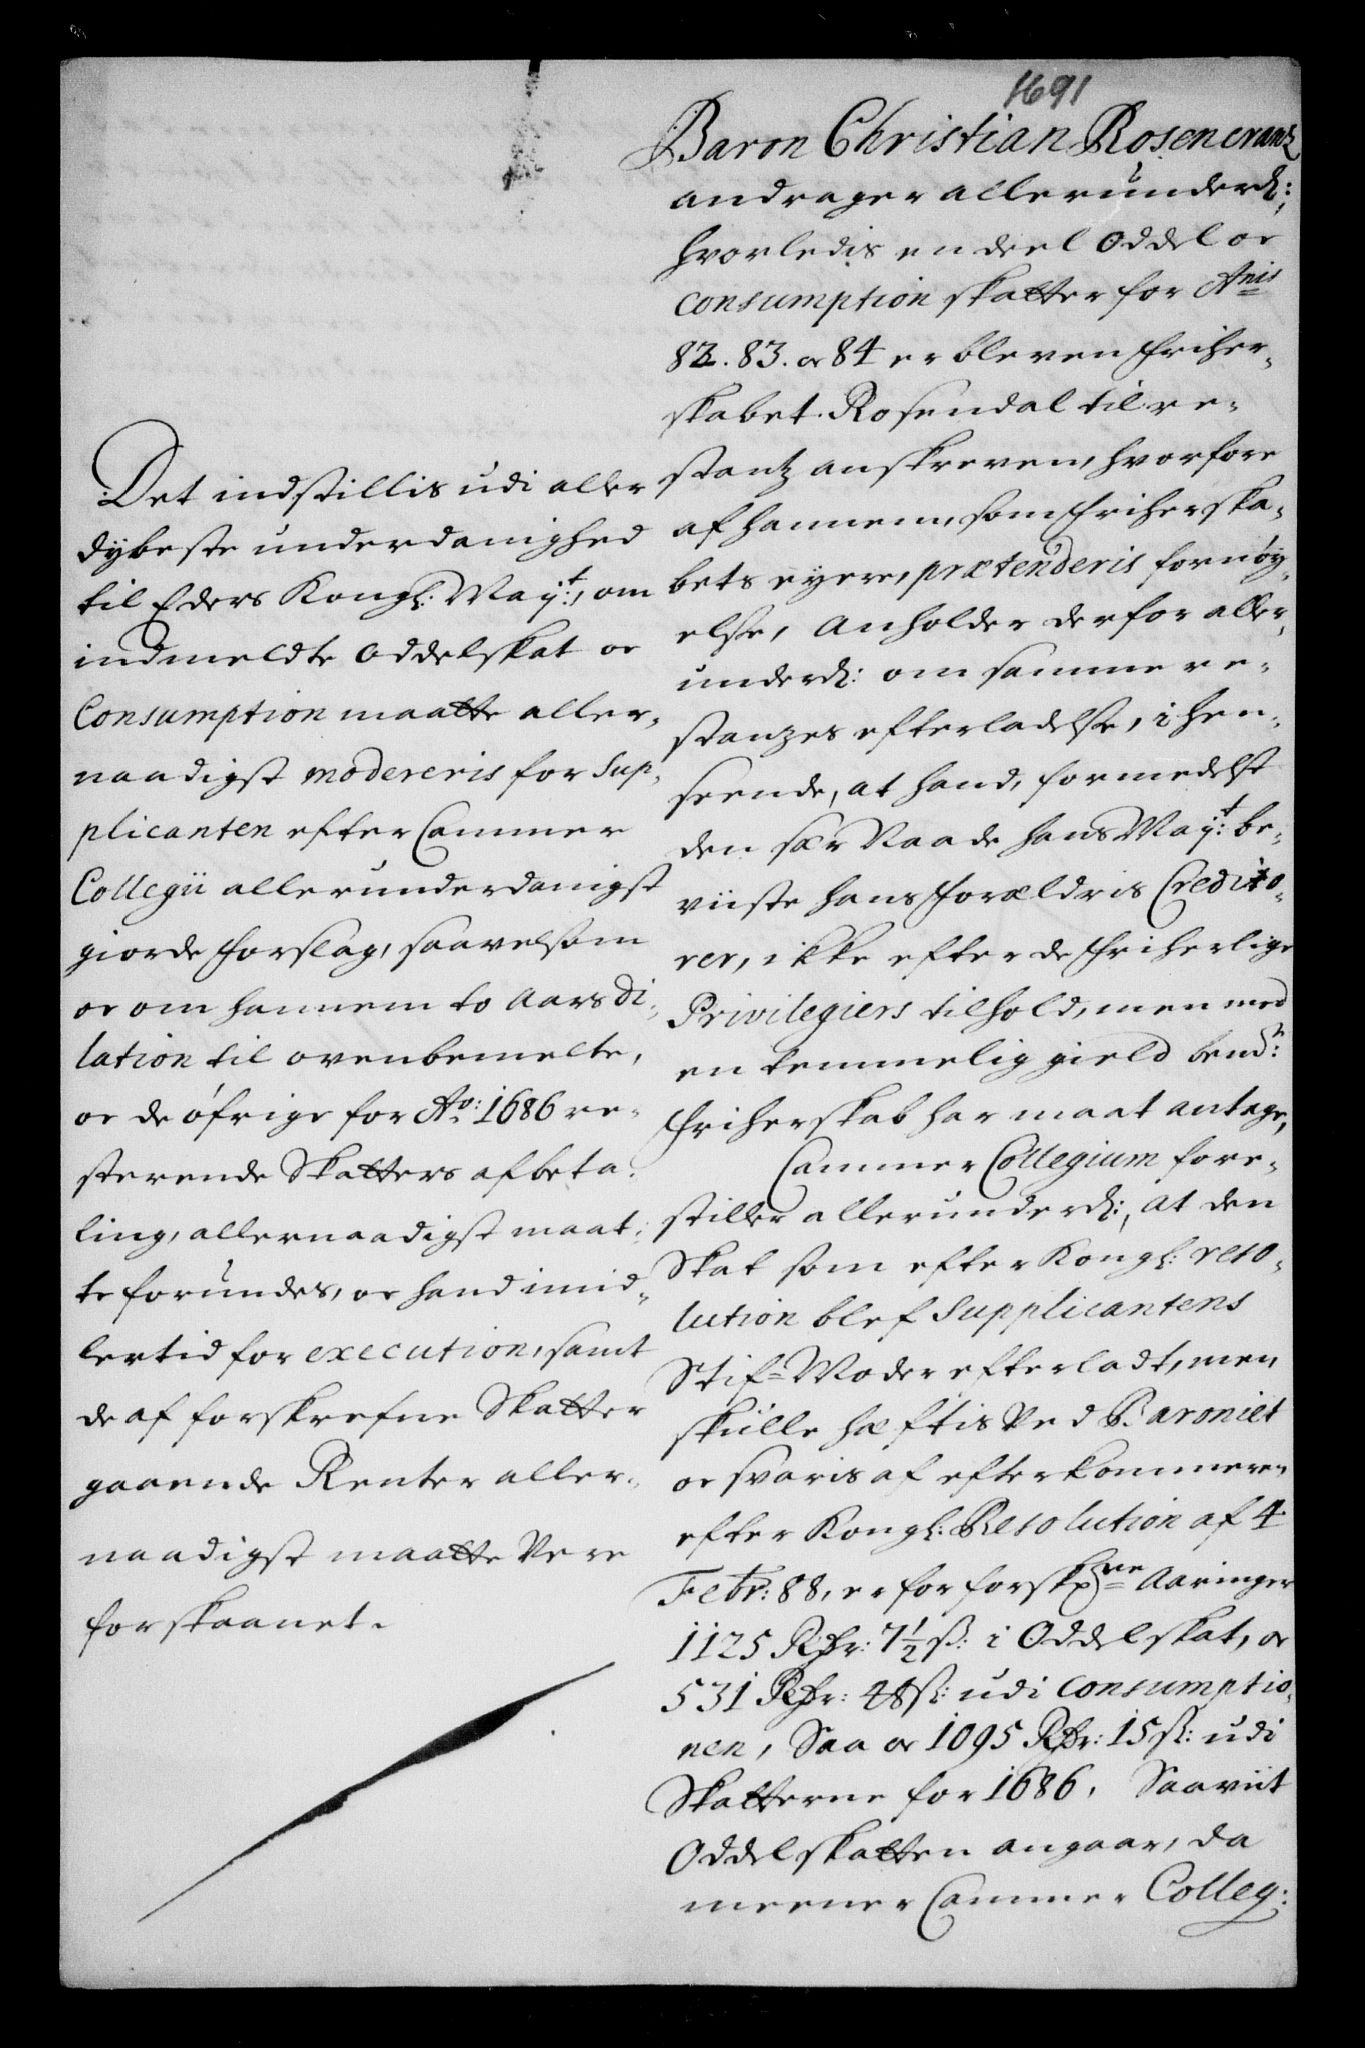 1691
Baron Christian Rosencrantz
andrager allerunderd:
hvorledis en deel Oddel oc
consumption skatter for Anis
82. 83. oc 84 er bleven friher-
skabet Rosendal til re-
stantz anskreven, hvorfore
af hannem, som friherska-
bets eyere, prætenderis fornøy-
else, Anholder derfor aller-
underd: om samme re-
stanzes efterladelse, i hen-
seende, at hand, formedelst
den sær Naade hans Mayt: be-
viiste hans forældris Credito-
rer, ikke efter de friherlige
Privilegiers tilhold, men med
en temmelig gield bend:
friherskab har maat antage,
Cammer Collegium fore-
stiller allerunderd:, at den
Skat som efter Kongl: reso-
lution blef Supplicantens
Stif-Moder efterladt, men
skulle hæftis ved Baroniet
oc svaris af efterkommeren
efter Kongl: Resolution af 4
Febr: 88, er for forskrne Aaringer
1125 Rdr: 7½ ß: i Oddelskat, oc
531 Rdr: 48 ß: udi consumptio-
nen, Saa oc 1095 Rdr: 15 ß: udi
Skatterne for 1686. Saaviit
Oddelskatten angaar, da
meener Cammer Colleg:
Det indstillis udi aller
dybeste underdanighed
til Eders Kongl: Mayt:, om
indmeldte Oddelskat oc
Consumption maatte aller-
naadigst modereris for Sup-
plicanten efter Cammer
Collegii allerunderdanigst
giorde forslag, saavelsom
oc om hannem to Aars Di-
lation til ovenbemelte,
oc de øfrige for Ao: 1686 re-
sterende Skatters afbeta-
ling, allernaadigst maat-
te forundes, oc hand imid-
lertid for execution, samt
de af forskrefne Skatter
gaaende Renter aller-
naadigst maatte vere
forskaanet.